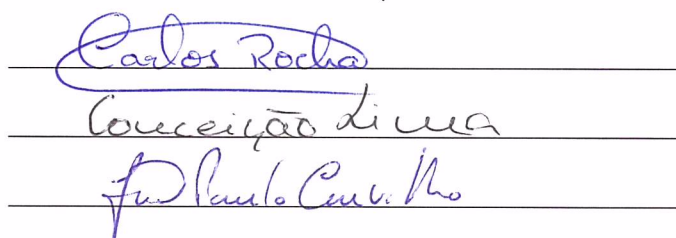 Carlos Rocha
Conceição Lima
Paulo Carvalho